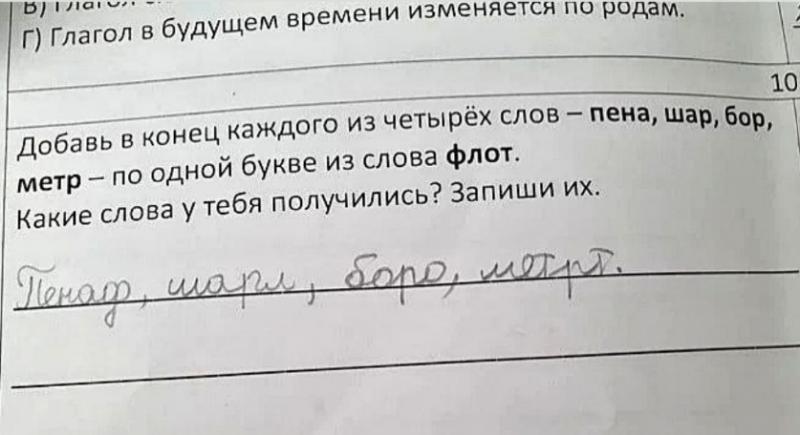 Г) Глагол в будущем времени изменяется по родам.
10
Добавь в конец каждого из четырёх слов – пена, шар, бор,
метр – по одной букве из слова флот.
Какие слова у тебя получились? Запиши их.
Пенаф, шарл, боро, метрт.